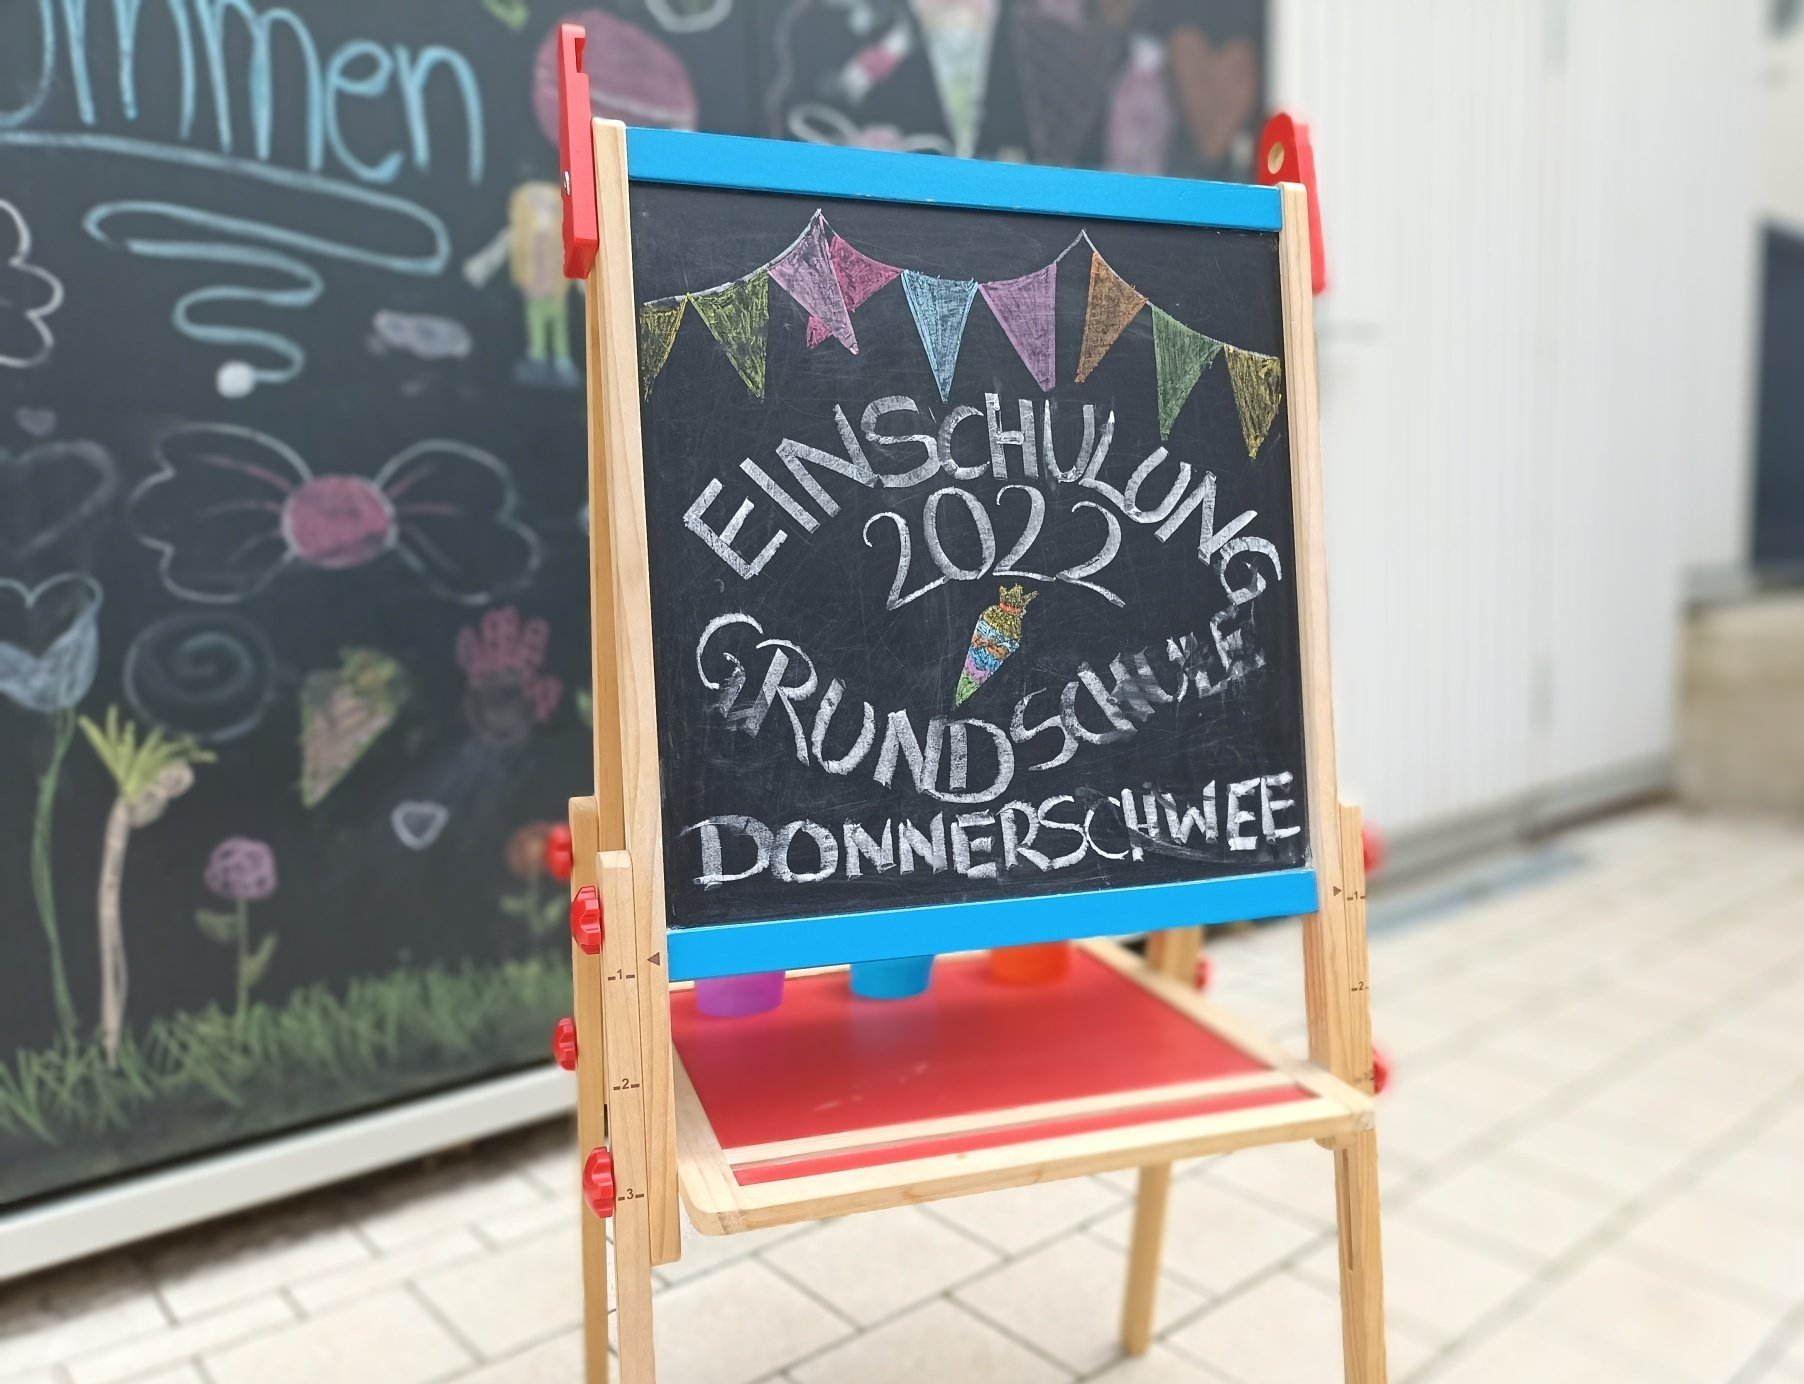 mmen
EINSCHULUNG
2022
GRUNDSCHULE
DONNERSCHWEE
1
2
3
1
2